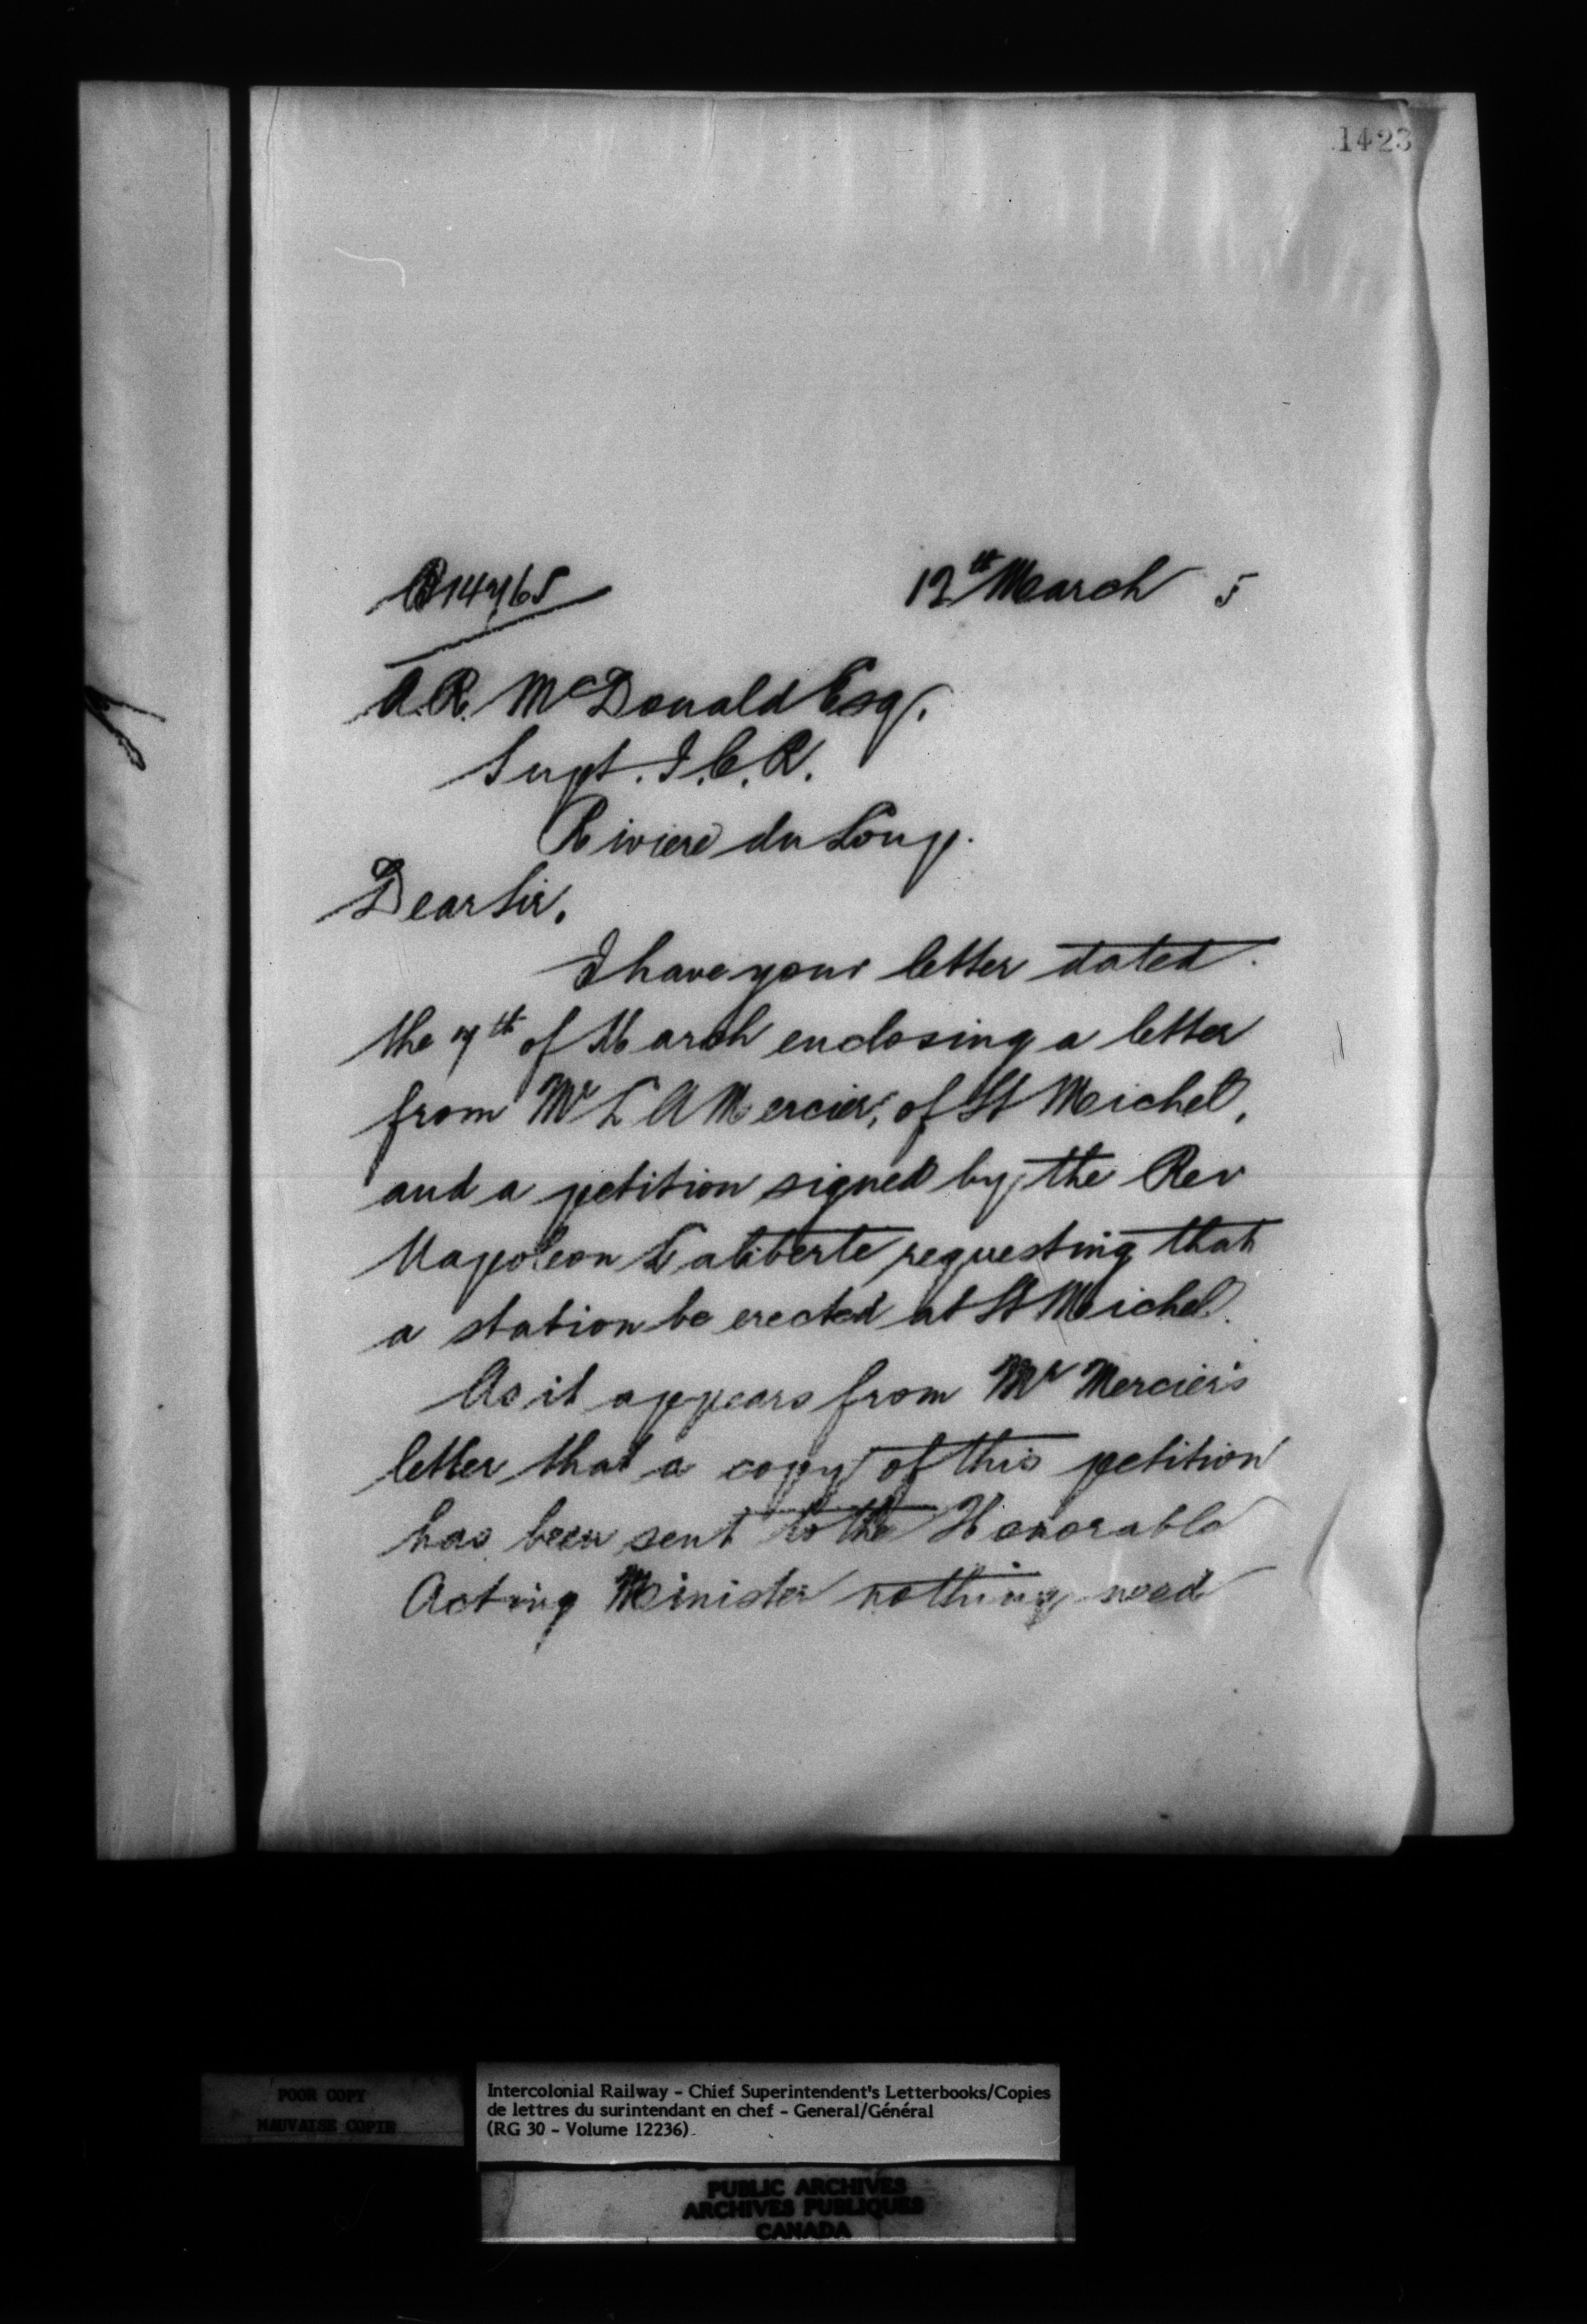 1423
B14765
12th March 5
A.R. McDonald Esq.
Supt. I.C.R.
Riviere du Loup.
Dear Sir,
I have your letter dated
the 7th of March enclosing a letter
from Mr L A Mercier, of St Meichel,
and a petition signed by the Rev
Napoleon Laliberte requesting that
a station be erected at St Meichel.
As it appears from Mr Mercier's
letter that a copy of this petition
has been sent to the Honorable
Acting Minister nothing need
POOR COPY
MAUVAISE COPIE
Intercolonial Railway - Chief Superintendent's Letterbooks/Copies
de lettres du surintendant en chef - General/Général
(RG 30 - Volume 12236)
PUBLIC ARCHIVES
ARCHIVES PUBLIQUES
CANADA